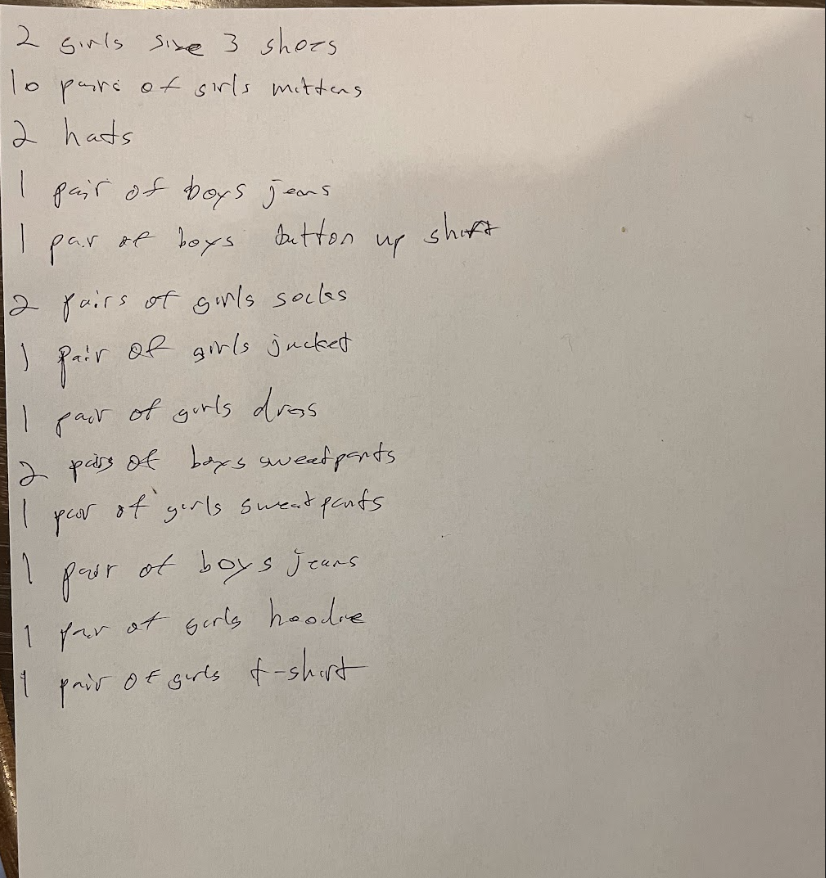 2 girls size 3 shoes
10 pairs of girls mittens
2 hats
1 pair of boys jeans
1 pair of boys button up shirt
2 pairs of girls socks
1 pair of girls jacket
1 pair of girls dress
2 pairs of boys sweatpants
1 pair of girls sweatpants
1 pair of boys jeans
1 pair of girls hoodie
1 pair of girls t-shirt